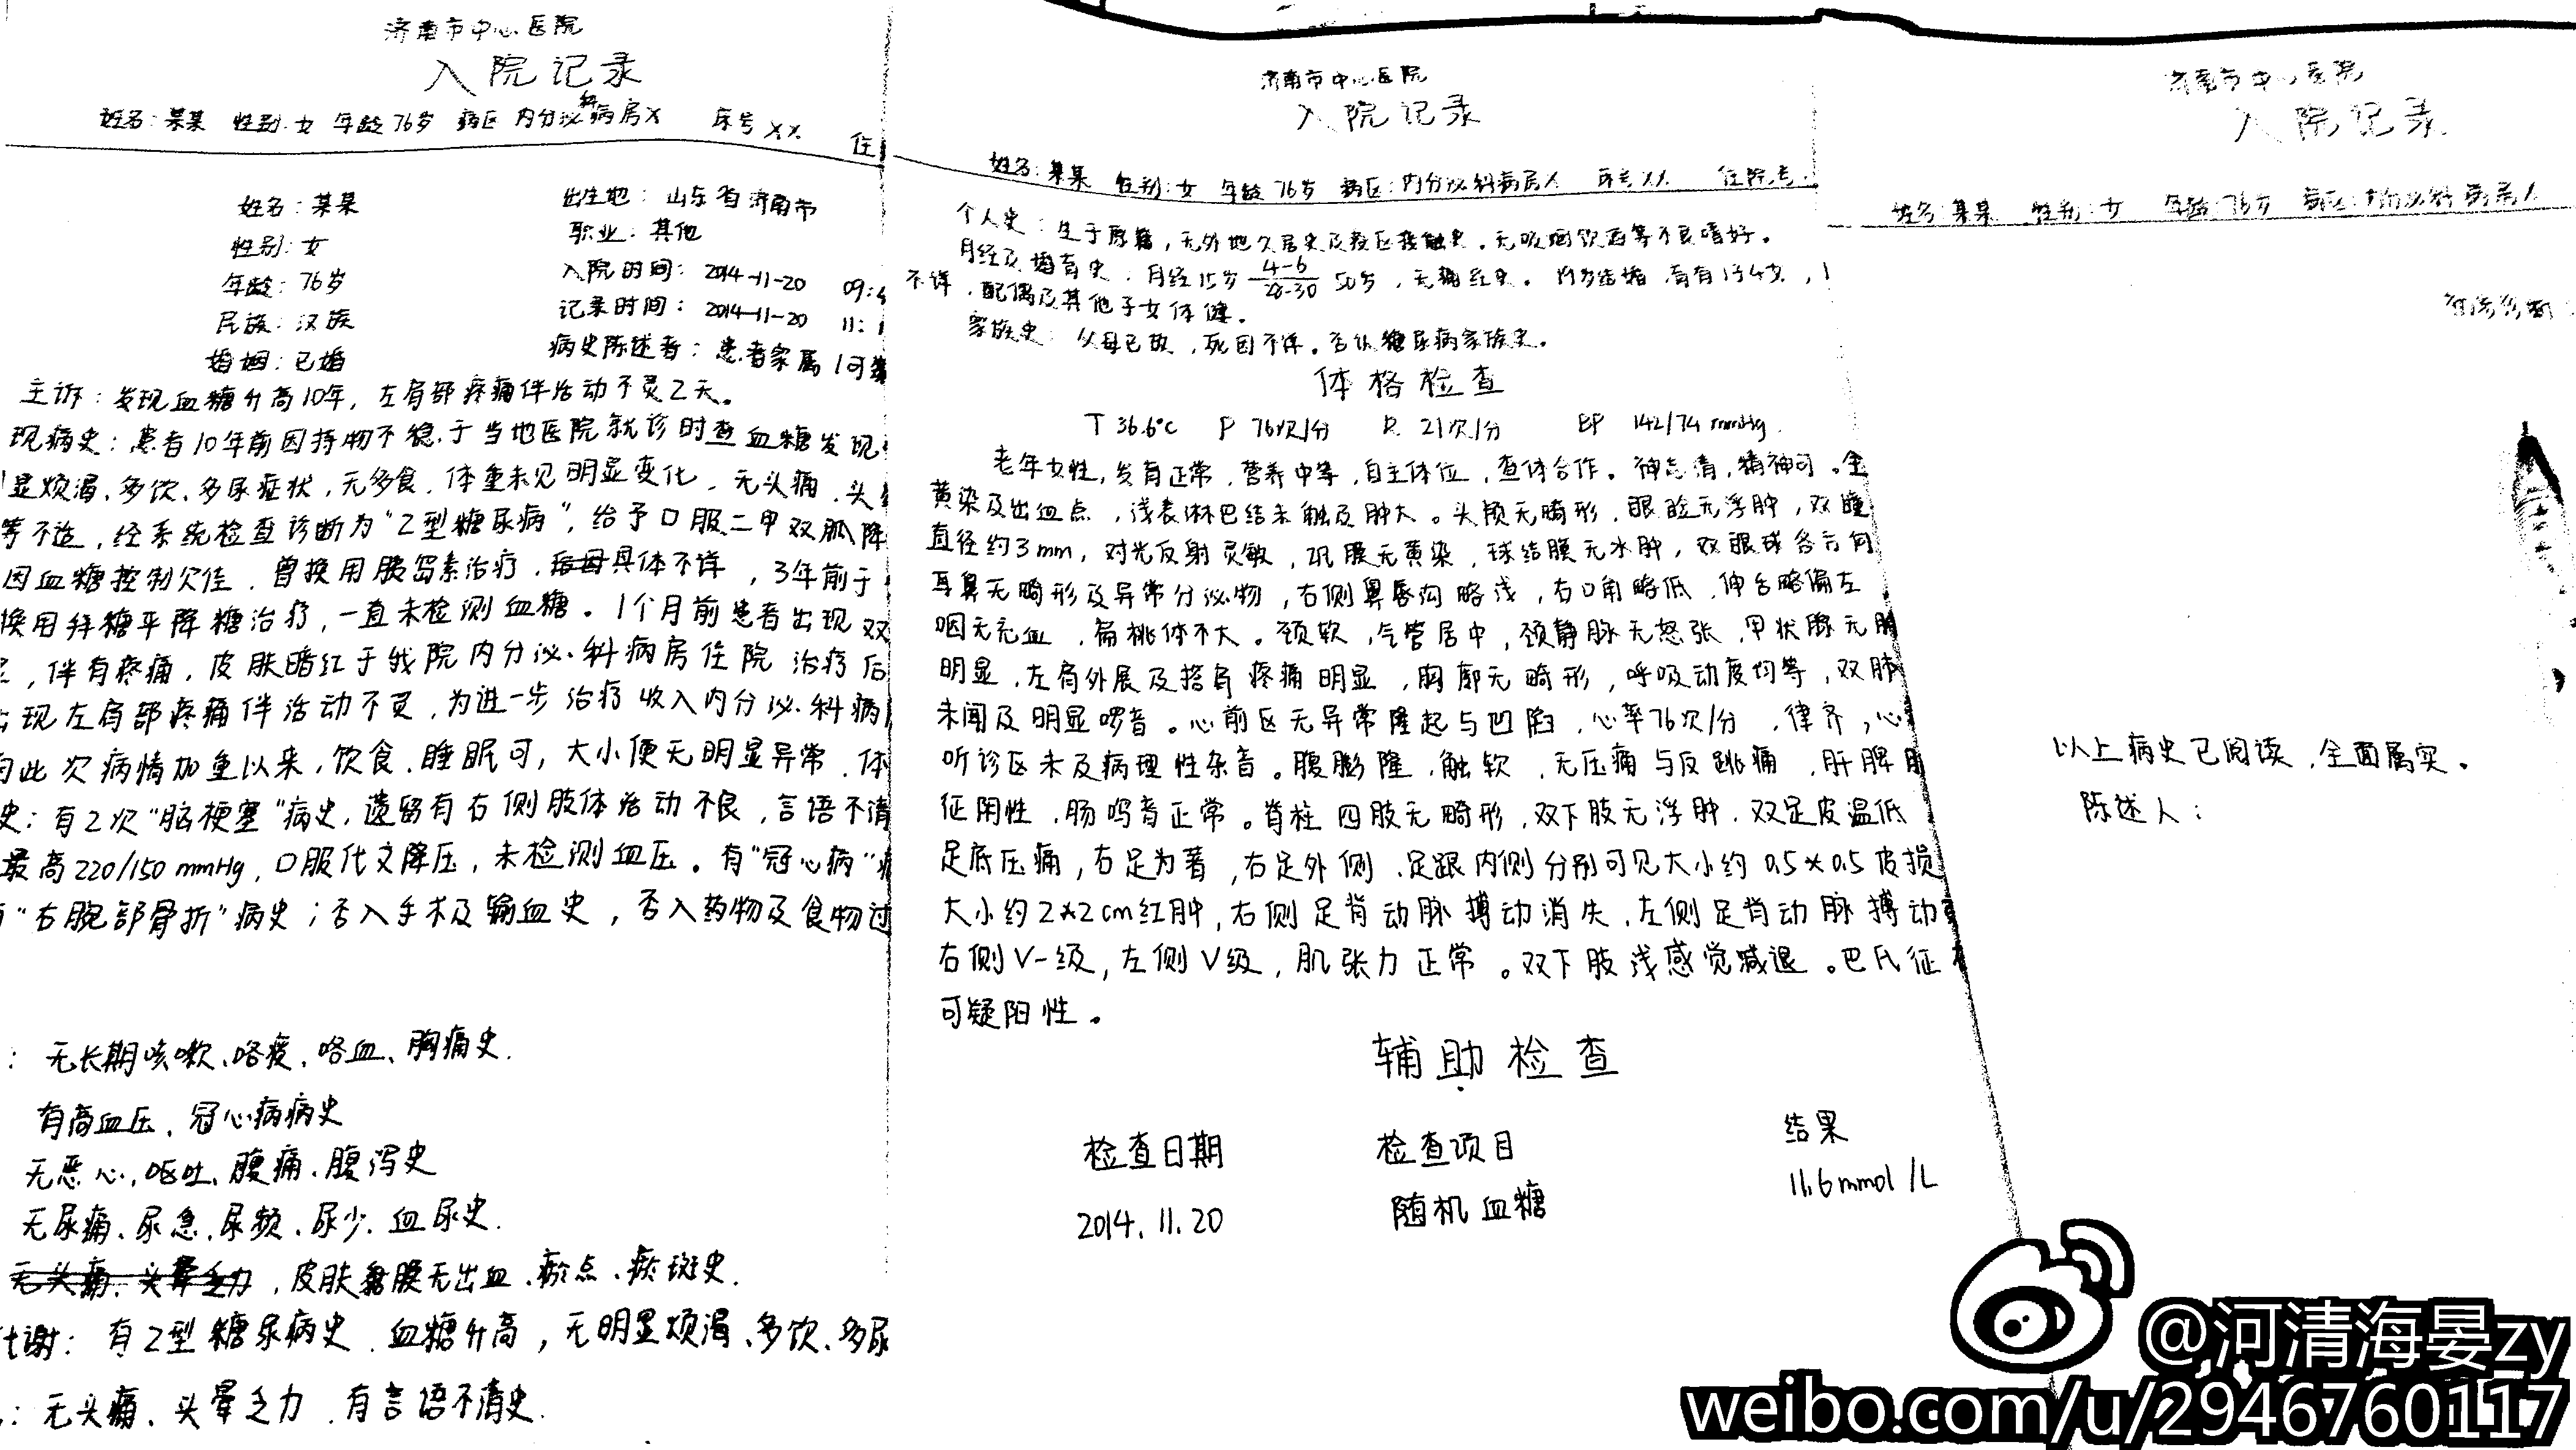 济南市中心医院
入院记录
姓名:某某 性别:女 年龄76岁 病区 内分泌科病房X 床号XX 住
姓名:某某 出生地:山东省济南市
性别:女 职业:其他
年龄:76岁 入院时间:2014-11-20 09:
民族:汉族 记录时间:2014-11-20 11:1
婚姻:已婚 病史陈述者:患者家属 1可靠
主诉:发现血糖升高10年,左肩部疼痛伴活动不灵2天。
现病史:患者10年前因持物不稳,于当地医院就诊时查血糖发现
显烦渴、多饮、多尿症状,无多食,体重未见明显变化,无头痛、头
等不适,经系统检查诊断为“2型糖尿病”,给予口服二甲双胍降
因血糖控制欠佳,曾换用胰岛素治疗,具体不详,3年前于
换用拜糖平降糖治疗,一直未检测血糖。1个月前患者出现双
,伴有疼痛,皮肤暗红于我院内分泌科病房住院治疗后
出现左肩部疼痛伴活动不灵,为进一步治疗收入内分泌科病
自此次病情加重以来,饮食、睡眠可,大小便无明显异常,体
史:有2次“脑梗塞”病史,遗留有右侧肢体活动不良,言语不清
最高220/150mmHg,口服代文降压,未检测血压。有“冠心病”
“右腕部骨折”病史;否入手术及输血史,否入药物及食物过
:无长期咳嗽、咯痰、咯血、胸痛史.
有高血压、冠心病病史
无恶心、呕吐、腹痛、腹泻史
无尿痛、尿急、尿频、尿少、血尿史.
无头痛、头晕乏力,皮肤黏膜无出血、瘀点、瘀斑史.
代谢:有2型糖尿病史,血糖升高,无明显烦渴、多饮、多尿
:无头痛、头晕乏力,有言语不清史.
济南市中心医院
入院记录
姓名:某某 性别:女 年龄76岁 病区:内分泌科病房X 床号XX 住院号
个人史:生于原籍,无外地久居史及疫区接触史,无吸烟饮酒等不良嗜好。
月经及婚育史:月经15岁 4-6/28-30 50岁,无痛经史。 岁结婚,育有1子4女,1
不详,配偶及其他子女体健。
家族史:父母已故,死因不详。否认糖尿病家族史。
体格检查
T 36.6℃ P 76次/分 R 21次/分 BP 142/74mmHg.
老年女性,发育正常,营养中等,自主体位,查体合作。神志清,精神可。全
黄染及出血点,浅表淋巴结未触及肿大。头颅无畸形,眼睑无浮肿,双瞳
直径约3mm,对光反射灵敏,巩膜无黄染,球结膜无水肿,双眼球各方向
耳鼻无畸形及异常分泌物,右侧鼻唇沟略浅,右口角略低,伸舌略偏左
咽无充血,扁桃体不大。颈软,气管居中,颈静脉无怒张,甲状腺无肿
明显,左肩外展及搭肩疼痛明显,胸廓无畸形,呼吸动度均等,双肺
未闻及明显啰音。心前区无异常隆起与凹陷,心率76次/分,律齐,心
听诊区未及病理性杂音。腹膨隆,触软,无压痛与反跳痛,肝脾肋
征阴性,肠鸣音正常。脊柱四肢无畸形,双下肢无浮肿,双足皮温低
足底压痛,右足为著,右足外侧、足跟内侧分别可见大小约0.5×0.5皮损
大小约2×2cm红肿,右侧足背动脉搏动消失,左侧足背动脉搏动
右侧V-级,左侧V级,肌张力正常。双下肢浅感觉减退。巴氏征
可疑阳性。
辅助检查
检查日期 检查项目 结果
2014.11.20 随机血糖 11.6mmol/L
济南市中心医院
入院记录
姓名:某某 性别:女 年龄:76岁 病区:内分泌科病房X
初步诊断:
以上病史已阅读,全面属实。
陈述人:
@河清海晏zy
weibo.com/u/2946760117